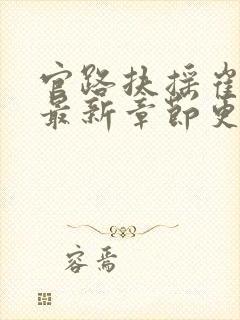 官路扶摇崔
最新章节更
容焉